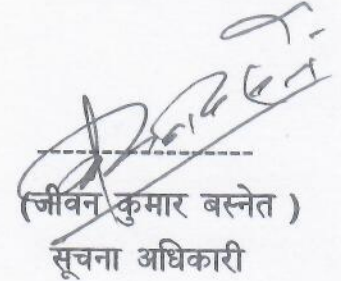 (जीवन कुमार बस्नेत )
सूचना अधिकारी